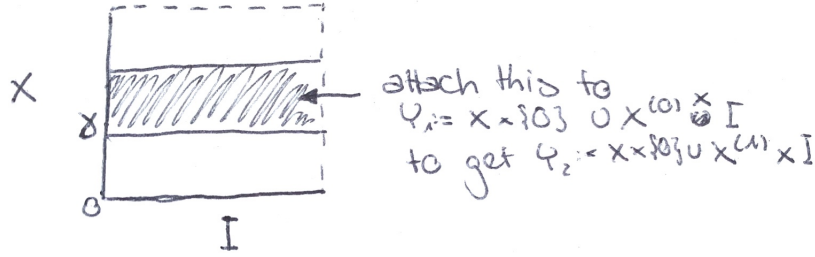 X
γ
0
I
attach this to
Y₁ := X × {0} ∪ X⁽⁰⁾ × I
to get Y₂ := X × {0} ∪ X⁽¹⁾ × I